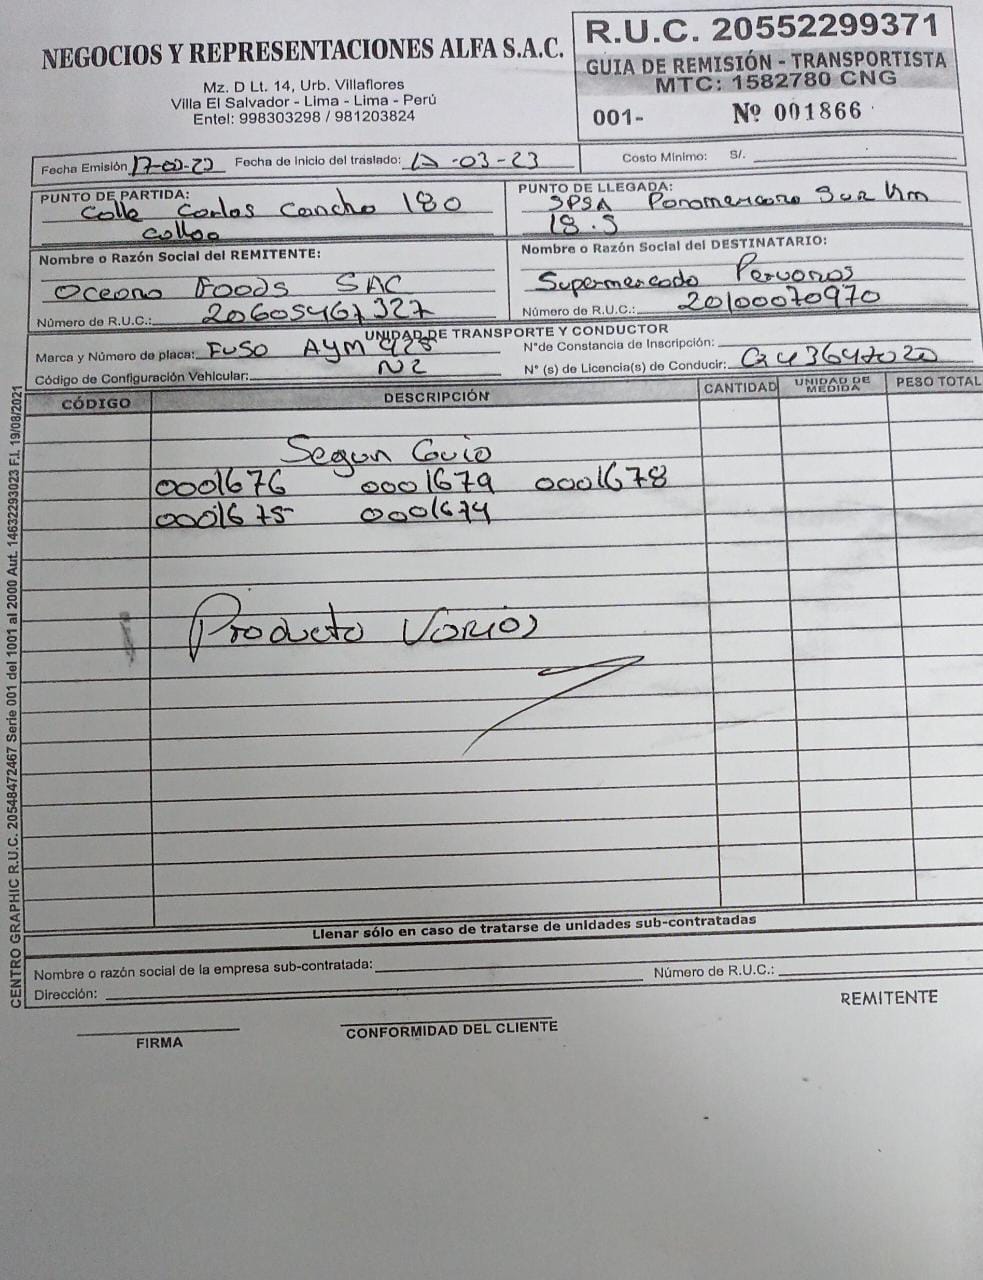 NEGOCIOS Y REPRESENTACIONES ALFA S.A.C.
Mz. D Lt. 14, Urb. Villaflores
Villa El Salvador - Lima - Lima - Perú
Entel: 998303298 / 981203824
R.U.C. 20552299371
GUIA DE REMISIÓN - TRANSPORTISTA
MTC: 1582780 CNG
001- Nº 001866
Fecha Emisión 17-03-23 Fecha de inicio del traslado: 17-03-23 Costo Mínimo: S/.
PUNTO DE PARTIDA:
Calle Carlos Concha 180
Callao
PUNTO DE LLEGADA:
SPSA Panamericana Sur Km
18.5
Nombre o Razón Social del REMITENTE:
Oceano Foods SAC
Número de R.U.C.: 20605467327
Nombre o Razón Social del DESTINATARIO:
Supermercado Peruanos
Número de R.U.C.: 20100070970
UNIDAD DE TRANSPORTE Y CONDUCTOR
Marca y Número de placa: FUSO AYM 928
Código de Configuración Vehicular: N2
N°de Constancia de Inscripción:
N° (s) de Licencia(s) de Conducir:
CÓDIGO DESCRIPCIÓN CANTIDAD UNIDAD DE MEDIDA PESO TOTAL
Segun Guia
0001676 0001679 0001678
0001675 0001674
Producto Varios
Llenar sólo en caso de tratarse de unidades sub-contratadas
Nombre o razón social de la empresa sub-contratada: Número de R.U.C.:
Dirección:
FIRMA
CONFORMIDAD DEL CLIENTE
REMITENTE
CENTRO GRAPHIC R.U.C. 20548472467 Serie 001 del 1001 al 2000 Aut. 14632293023 F.I. 19/08/2021